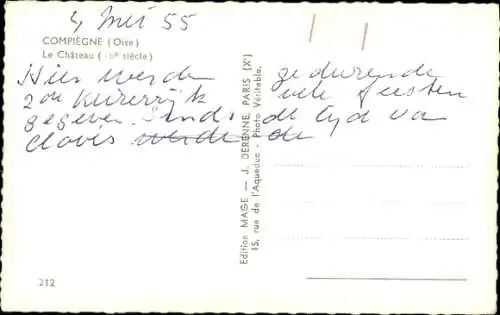 4 Mei 55
COMPIÈGNE (Oise)
Le Château ( 6e siècle)
Hier werden
zoo
gegeven. Sinds
Clovis
gedurende
vele feesten
de tyd van
de
Edition MAGE — J. DERENNE, PARIS (Xe)
15, rue de l'Aqueduc - Photo Véritable.
212